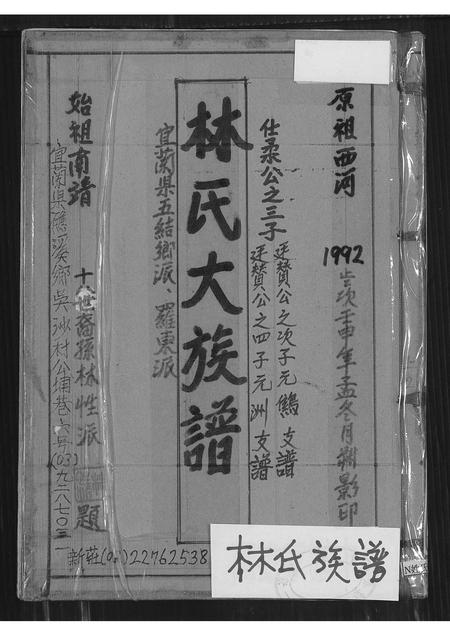 原祖西河
1992 歲次壬申年孟冬月 影印
仕柔公之三子
廷贊公之次子元鷄支譜
廷贊公之四子元洲支譜
林氏大族譜
宜蘭県五結鄉派、羅東派
始祖南靖
十 世裔孫林性派 題
宜蘭県礁溪鄉吳沙村公埔巷六号(03)九二八七〇三一
新莊(02)22762538
林氏族譜